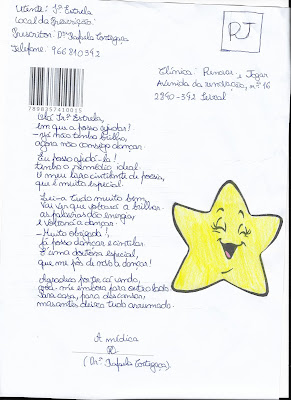 Utente: Srª Estrela
Local da Prescrição:
Prescritor: Drª Rafaela Cortegaça
Telefone: 966810392
RJ
Clínica: Renovar e Jogar
Avenida da renovação, n.º 16
2840-392
Olá Srª Estrela,
em que a posso ajudar?
-Já não tenho brilho,
agora não consigo dançar.
Eu posso ajudá-la!
tenho o remédio ideal
O meu livro cintilante de poesia,
que é muito especial.
Leia-a tudo muito bem,
vai ver que voltará a brilhar.
As palavras dão energia,
e voltará a dançar.
-Muito obrigada!
Já posso dançar e cintilar.
É uma doutora especial,
que me pôs de volta a dançar!
Agradeço por ter cá vindo,
vou-me embora para outro lado
Para casa, para descansar,
mas antes deixo tudo arrumado.
A médica
(Drª Rafaela Cortegaça)